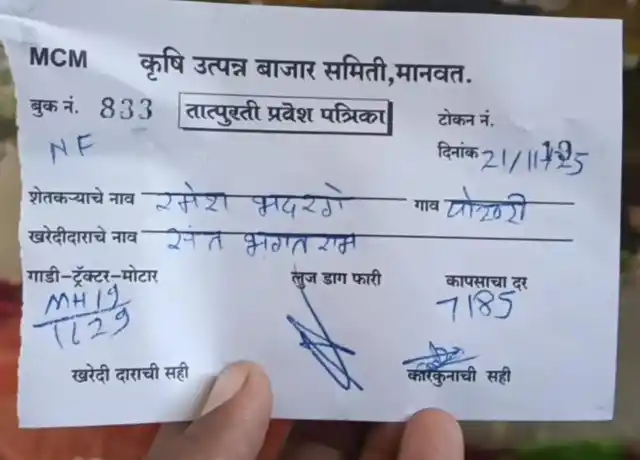 MCM कृषि उत्पन्न बाजार समिती,मानवत.
बुक नं. 833 तात्पुरती प्रवेश पत्रिका टोकन नं.
NF दिनांक 21/11/25
शेतकऱ्याचे नाव रमेश भदरगे गाव पोखरी
खरेदीदाराचे नाव संत भगतराम
गाडी-ट्रॅक्टर-मोटार लुज डाग फारी कापसाचा दर
MH19 7185
1129
खरेदी दाराची सही कारकुनाची सही